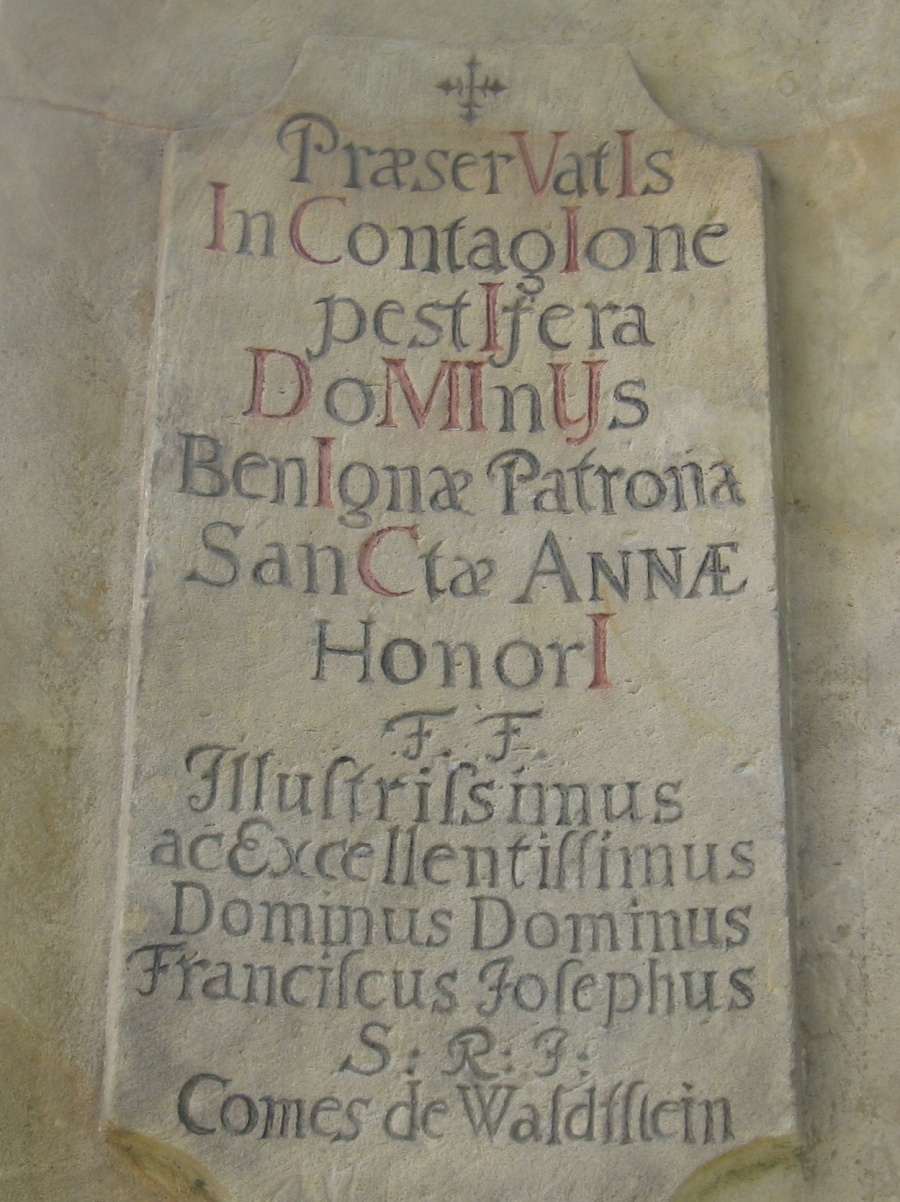 PræserVatIs
In ContagIone
pestIfera
DoMInYs
BenIgnæ Patrona
SanCtæ ANNÆ
HonorI
F. F
Illuſtriſsimus
ac Excellentiſſimus
Dominus Dominus
Franciſcus Joſephus
S: R: J:
Comes de Waldſtein